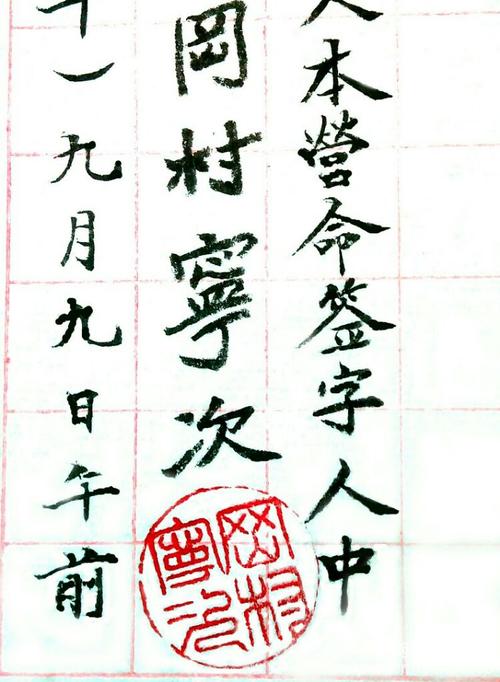 本營命簽字人中
岡村寧次
九月九日午前
岡村
寧次